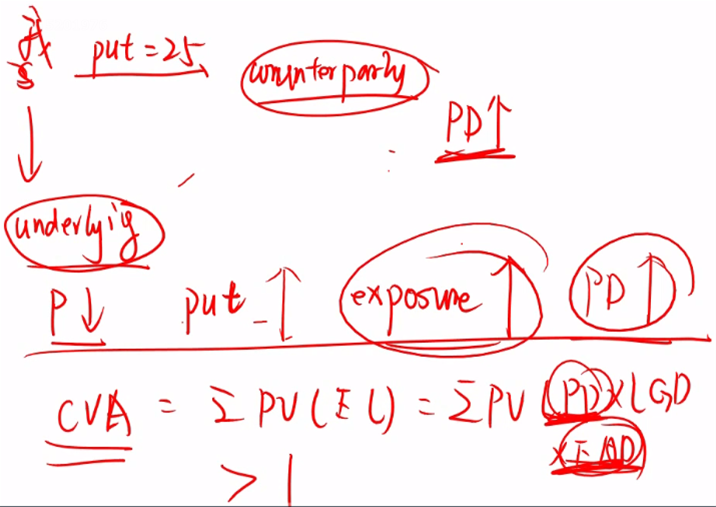 我 put = 25 counterparty
PD↑
↓
underlyig
P↓ put ↑ exposure ↑ PD↑
CVA = Σ PV(EL) = Σ PV (PD) × LGD
× EAD
> 1